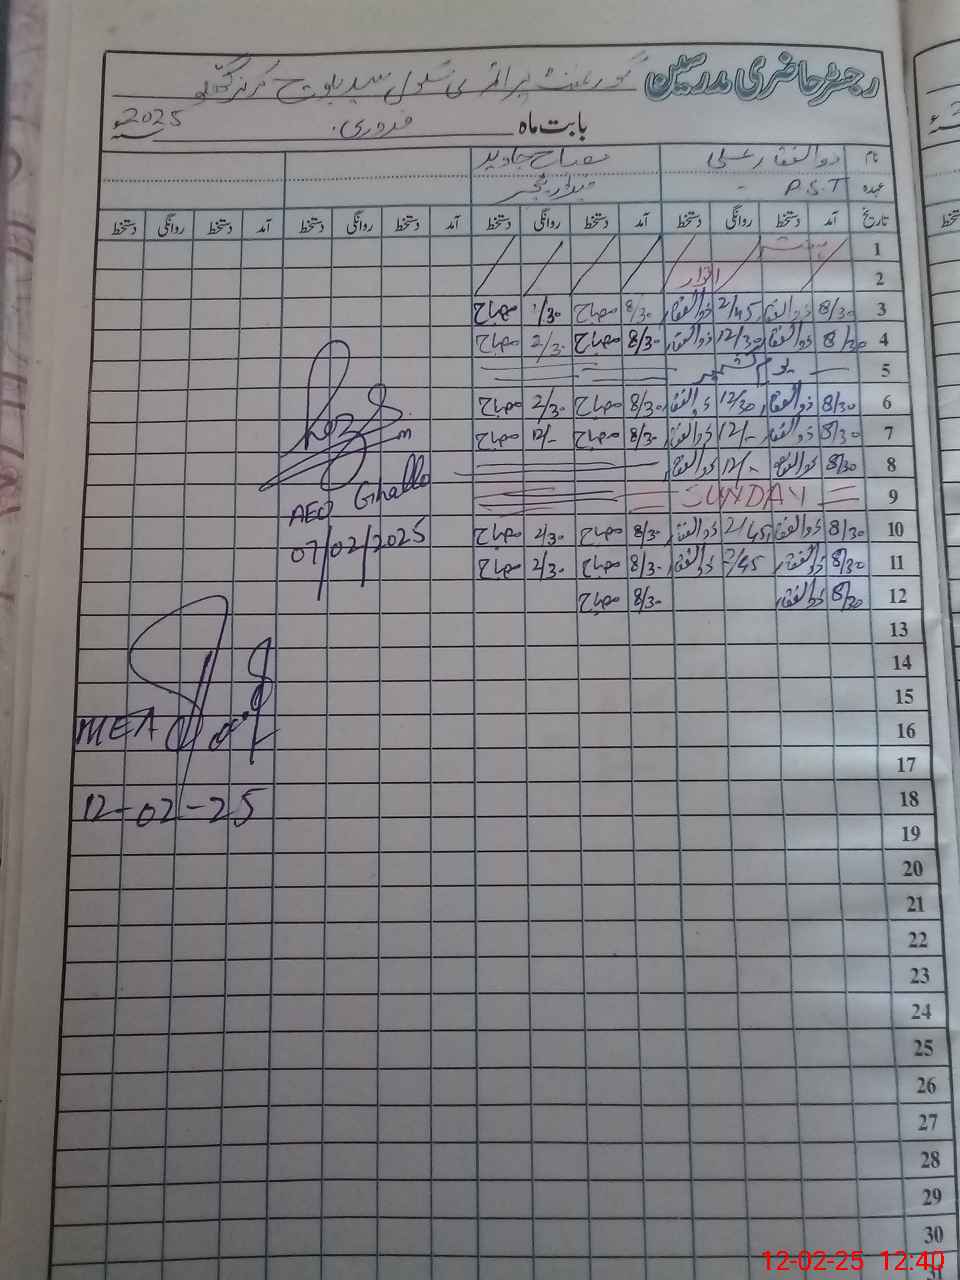 رجسٹر حاضری مدرسین گورنمنٹ پرائمری سکول سید بلوچ مرکز گھلو
بابت ماہ فروری 2025ء
نام ذوالفقار علی مصباح جاوید
عہدہ P.S.T
تاریخ آمد دستخط روانگی دستخط آمد دستخط روانگی دستخط آمد دستخط روانگی دستخط آمد دستخط روانگی دستخط
1
2 اتوار
3 8/30 ذوالفقار 2/45 ذوالفقار 8/30 مصباح 1/30 مصباح
4 8/30 ذوالفقار 12/30 ذوالفقار 8/30 مصباح 2/30 مصباح
5 یوم کشمیر
6 8/30 ذوالفقار 12/30 ذوالفقار 8/30 مصباح 2/30 مصباح
7 8/30 ذوالفقار 12/- ذوالفقار 8/30 مصباح 12/- مصباح
8 8/30 ذوالفقار 12/- ذوالفقار
9 SUNDAY
10 8/30 ذوالفقار 2/45 ذوالفقار 8/30 مصباح 2/30 مصباح
11 8/30 ذوالفقار 2/45 ذوالفقار 8/30 مصباح 2/30 مصباح
12 8/30 ذوالفقار 8/30 مصباح
AEO Ghallo
07/02/2025
13
14
15
16
MEA
17
18
12-02-25
19
20
21
22
23
24
25
26
27
28
29
30
31
12-02-25 12:40